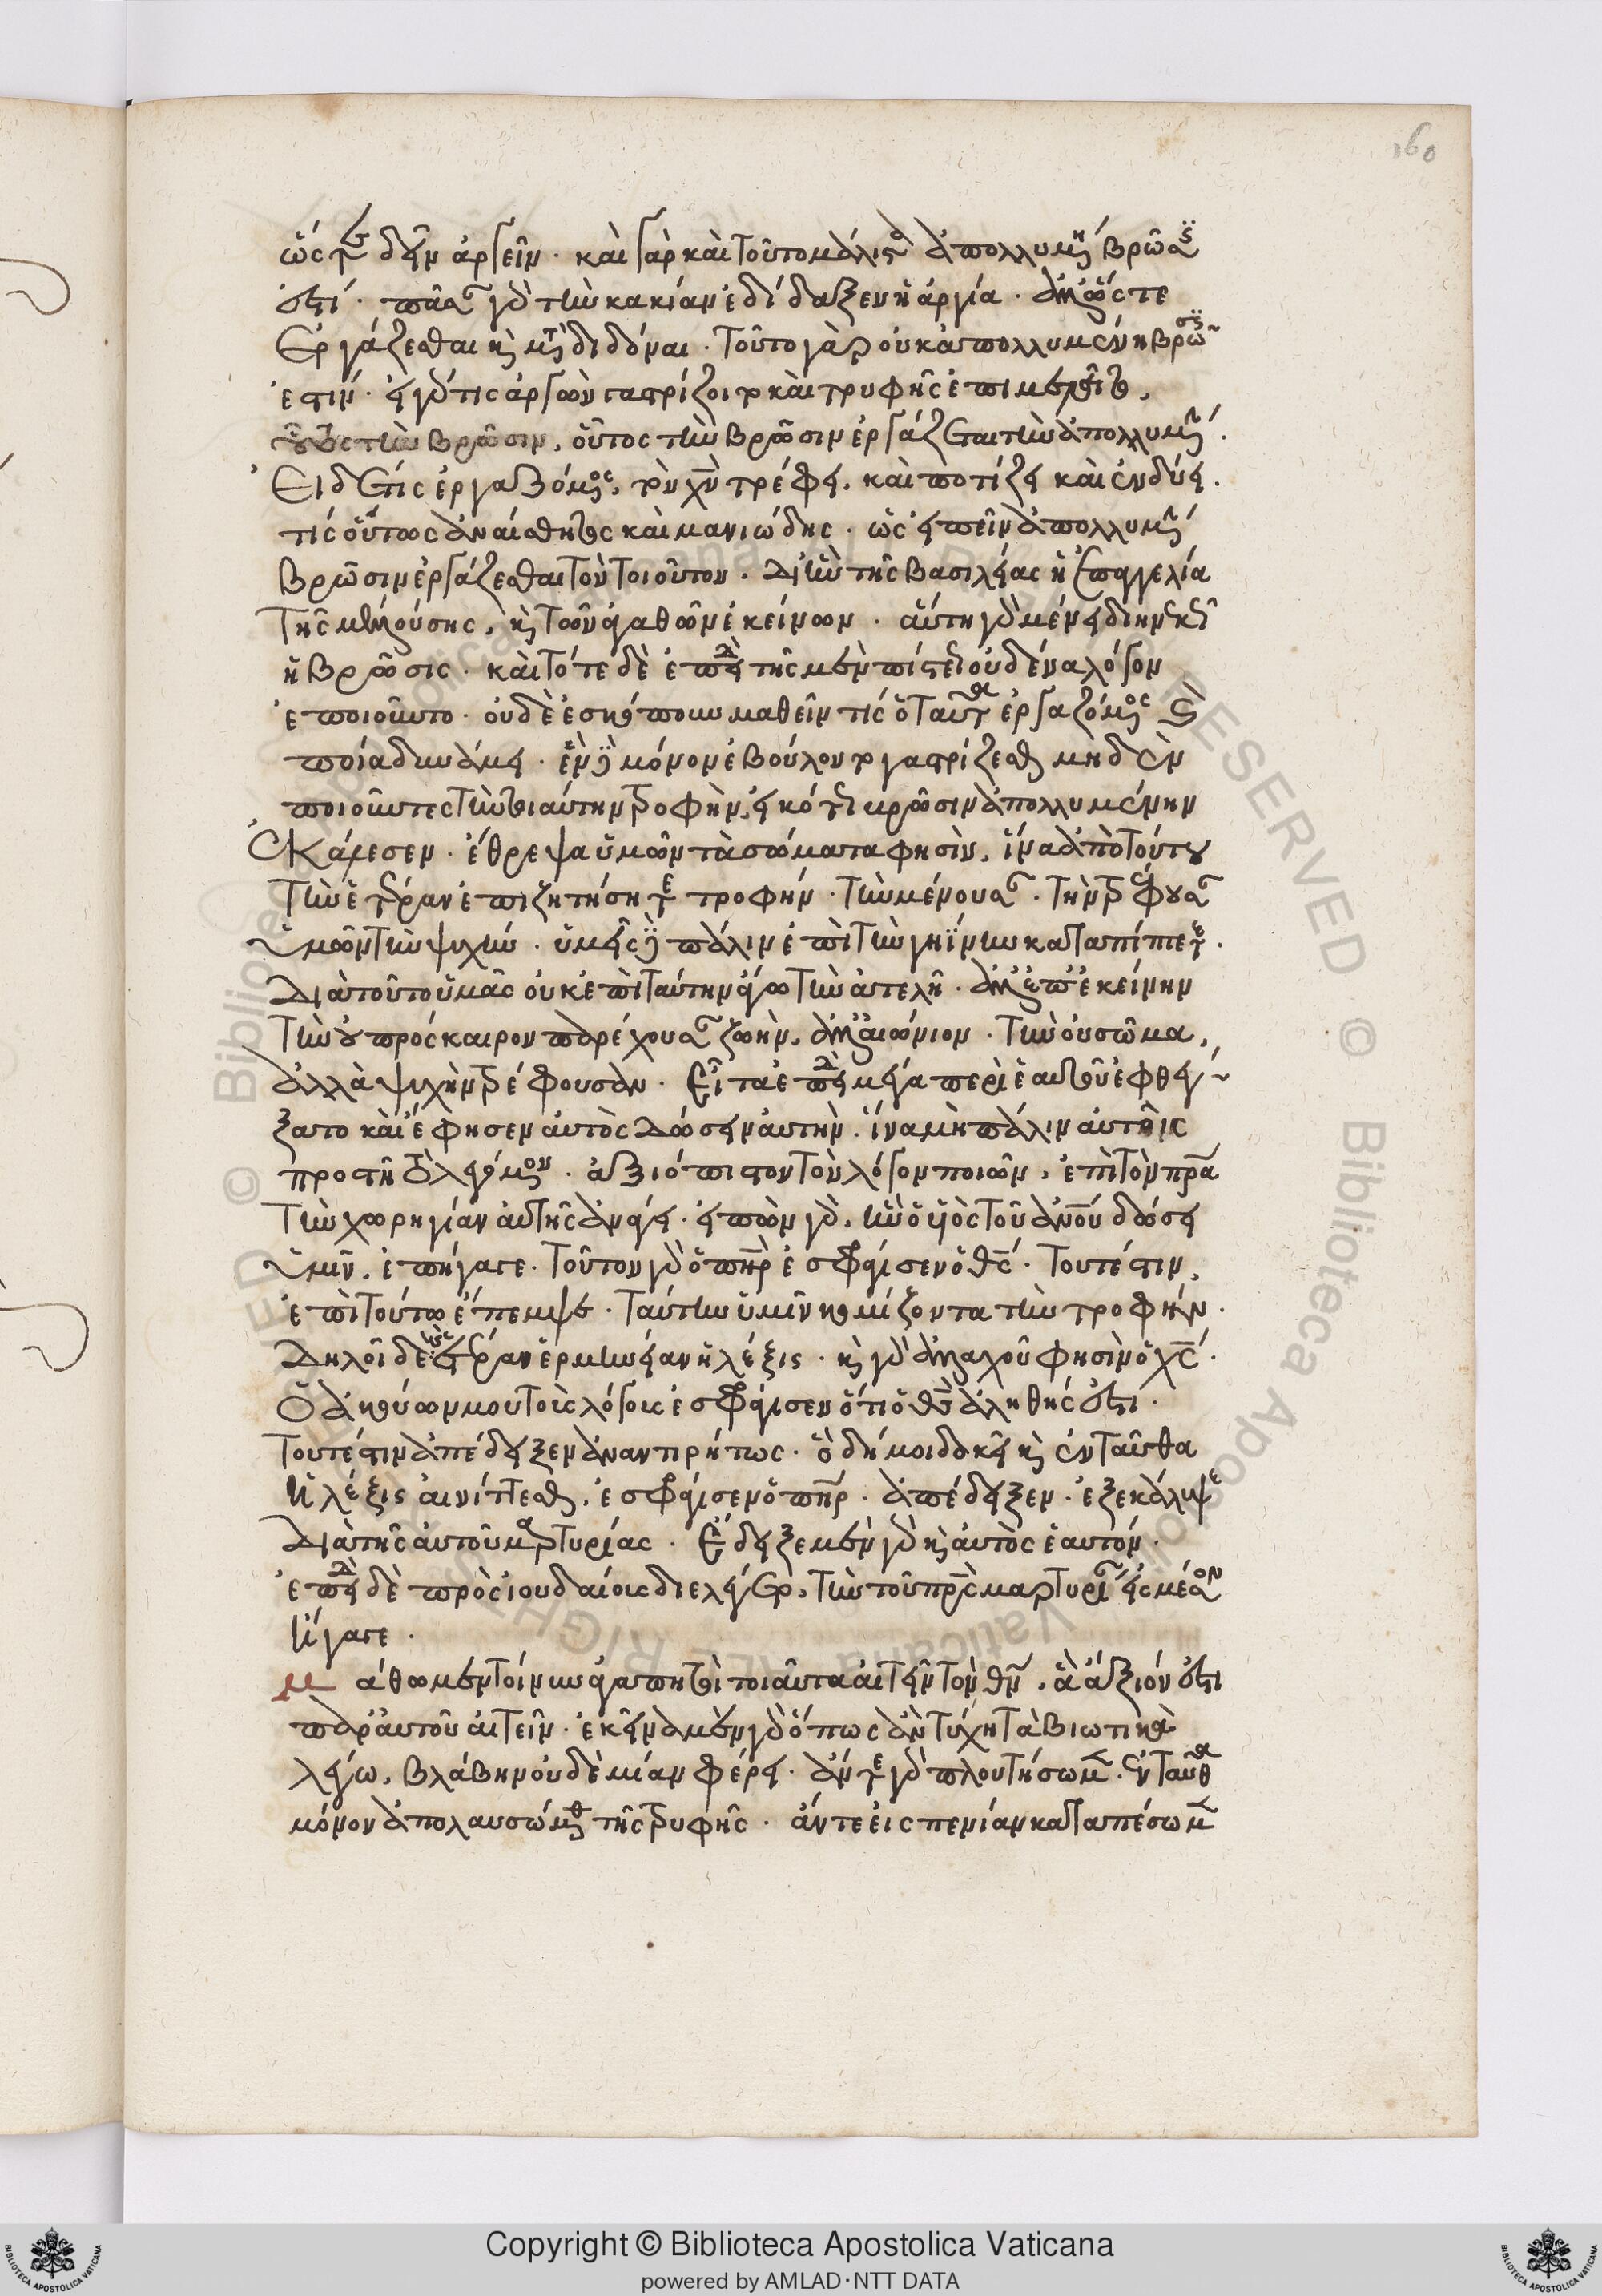 160
ὥστε δεῖν ἀργεῖν · καὶ γὰρ καὶ τοῦτο μάλιστα ἀπολλυμένη βρῶσις
ἐστί · πᾶσαν γὰρ τὴν κακίαν ἐδίδαξεν ἡ ἀργία · ἀλλ' ὥστε
ἐργάζεσθαι καὶ μεταδιδόναι · τοῦτο γὰρ οὐκ ἀπολλυμένη βρῶσις
ἐστιν · εἰ γάρ τις ἀργῶν γαστρίζοιτο καὶ τρυφῆς ἐπιμελοῖτο,
οὗτος τὴν βρῶσιν, οὗτος τὴν βρῶσιν ἐργάζεται τὴν ἀπολλυμένην ·
Εἰ δέ τις ἐργαζόμενος, τὸν χν τρέφει, καὶ ποτίζει καὶ ἐνδύει ·
τίς οὕτως ἀναίσθητος καὶ μανιώδης · ὡς εἰπεῖν ἀπολλυμένην
βρῶσιν ἐργάζεσθαι τὸν τοιοῦτον · δι' ἣν τῆς βασιλείας ἡ ἐπαγγελία
τῆς μελλούσης, καὶ τῶν ἀγαθῶν ἐκείνων · αὕτη γὰρ μένει διηνεκεῖ
ἡ βρῶσις · καὶ τότε δὲ ἐπειδὴ τῆς μὲν πίστεως οὐδένα λόγον
ἐποιοῦντο · οὐδὲ ἐσκόπουν μαθεῖν τίς ὁ ταῦτα ἐργαζόμενος καὶ
ποία δυνάμει · ἓν δὲ μόνον ἐβούλοντο γαστρίζεσθαι μηδὲν
ποιοῦντες τὴν τοιαύτην τροφὴν, εἰκότως βρῶσιν ἀπολλυμένην
ἐκάλεσεν · ἔθρεψα ὑμῶν τὰ σώματα φησὶν, ἵνα ἀπὸ τούτου
τὴν ἑτέραν ἐπιζητήσητε τροφήν · τὴν μένουσαν · τὴν τρέφουσαν
ὑμῶν τὴν ψυχήν · ὑμεῖς δὲ πάλιν ἐπὶ τὴν γηΐνην καταπίπτετε ·
Διὰ τοῦτο ὑμᾶς οὐκ ἐπὶ ταύτην ἄγω τὴν ἀτελῆ · ἀλλ' ἐπ' ἐκείνην
τὴν οὐ πρόσκαιρον παρέχουσαν ζωὴν, ἀλλ' αἰώνιον · τὴν οὐ σῶμα,
ἀλλὰ ψυχὴν τρέφουσαν · Εἶτα ἐπειδὴ μεγάλα περὶ ἑαυτοῦ ἐφθέγ-
ξατο καὶ ἔφησεν αὐτὸς δώσειν αὐτὴν · ἵνα μὴ πάλιν αὐτοῖς
προστῇ τὸ λεγόμενον · ἀξιόπιστον τὸν λόγον ποιῶν, ἐπὶ τὸν πρα
τὴν χορηγίαν αὐτῆς ἀνάγει · εἰπὼν γὰρ, ἣν ὁ υἱὸς τοῦ ἀνου δώσει
ὑμῖν, ἐπήγαγε · τοῦτον γὰρ ὁ πηρ ἐσφράγισεν ὁ θς · τουτέστιν,
ἐπὶ τούτῳ ἔπεμψε · ταύτην ὑμῖν κομίζοντα τὴν τροφήν ·
Δηλοῖ δὲ καὶ ἑτέραν ἑρμηνείαν ἡ λέξις · καὶ γὰρ ἀλλαχοῦ φησὶν ὁ χς ·
Ὁ ἀκούων μου τοὺς λόγους ἐσφράγισεν ὅτι ὁ θς ἀληθής ἐστι ·
τουτέστιν ἀπέδειξεν ἀναντιρήτως · ὃ δή μοι δοκεῖ καὶ ἐνταῦθα
ἡ λέξις αἰνίττεσθαι, ἐσφράγισεν ὁ πηρ · ἀπέδειξεν · ἐξεκάλυψε
διὰ τῆς αὐτοῦ μαρτυρίας · Ἔδειξε μὲν γὰρ καὶ αὐτὸς ἑαυτόν ·
ἐπειδὴ δὲ πρὸς ἰουδαίοις διελέγετο, τὴν τοῦ πρς μαρτυρίαν εἰς μέσον
ἤγαγε ·
μάθωμεν τοίνυν ἀγαπητοὶ τοιαῦτα αἰτεῖν τὸν θν, ἃ ἄξιόν ἐστι
παρ' αὐτοῦ αἰτεῖν · ἐκεῖνα μὲν γὰρ ὅπως ἂν τύχῃ τὰ βιωτικὰ
λέγω, βλάβην οὐδεμίαν φέρει · ἄν τε γὰρ πλουτήσωμεν · ἐνταῦθα
μόνον ἀπολαυσόμεθα τῆς τρυφῆς · ἄν τε εἰς πενίαν καταπέσωμεν
Copyright © Biblioteca Apostolica Vaticana
powered by AMLAD·NTT DATA